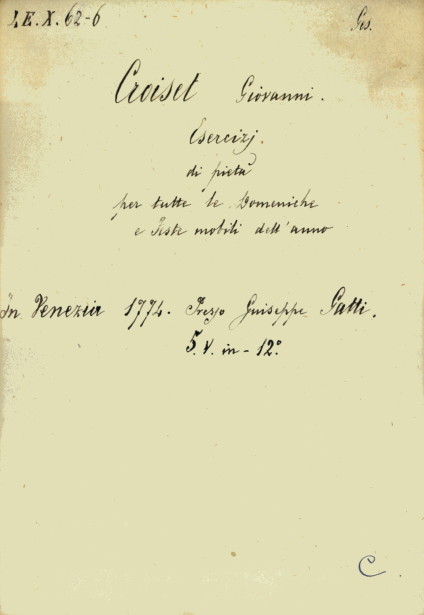 I.E.X. 62-6 Ges.
Croiset Giovanni.
Esercizj.
di pietà
per tutte le Domeniche
e Feste mobili dell'anno
In Venezia 1774. Presso Guiseppe Gatti.
5. V. in - 12°.
C